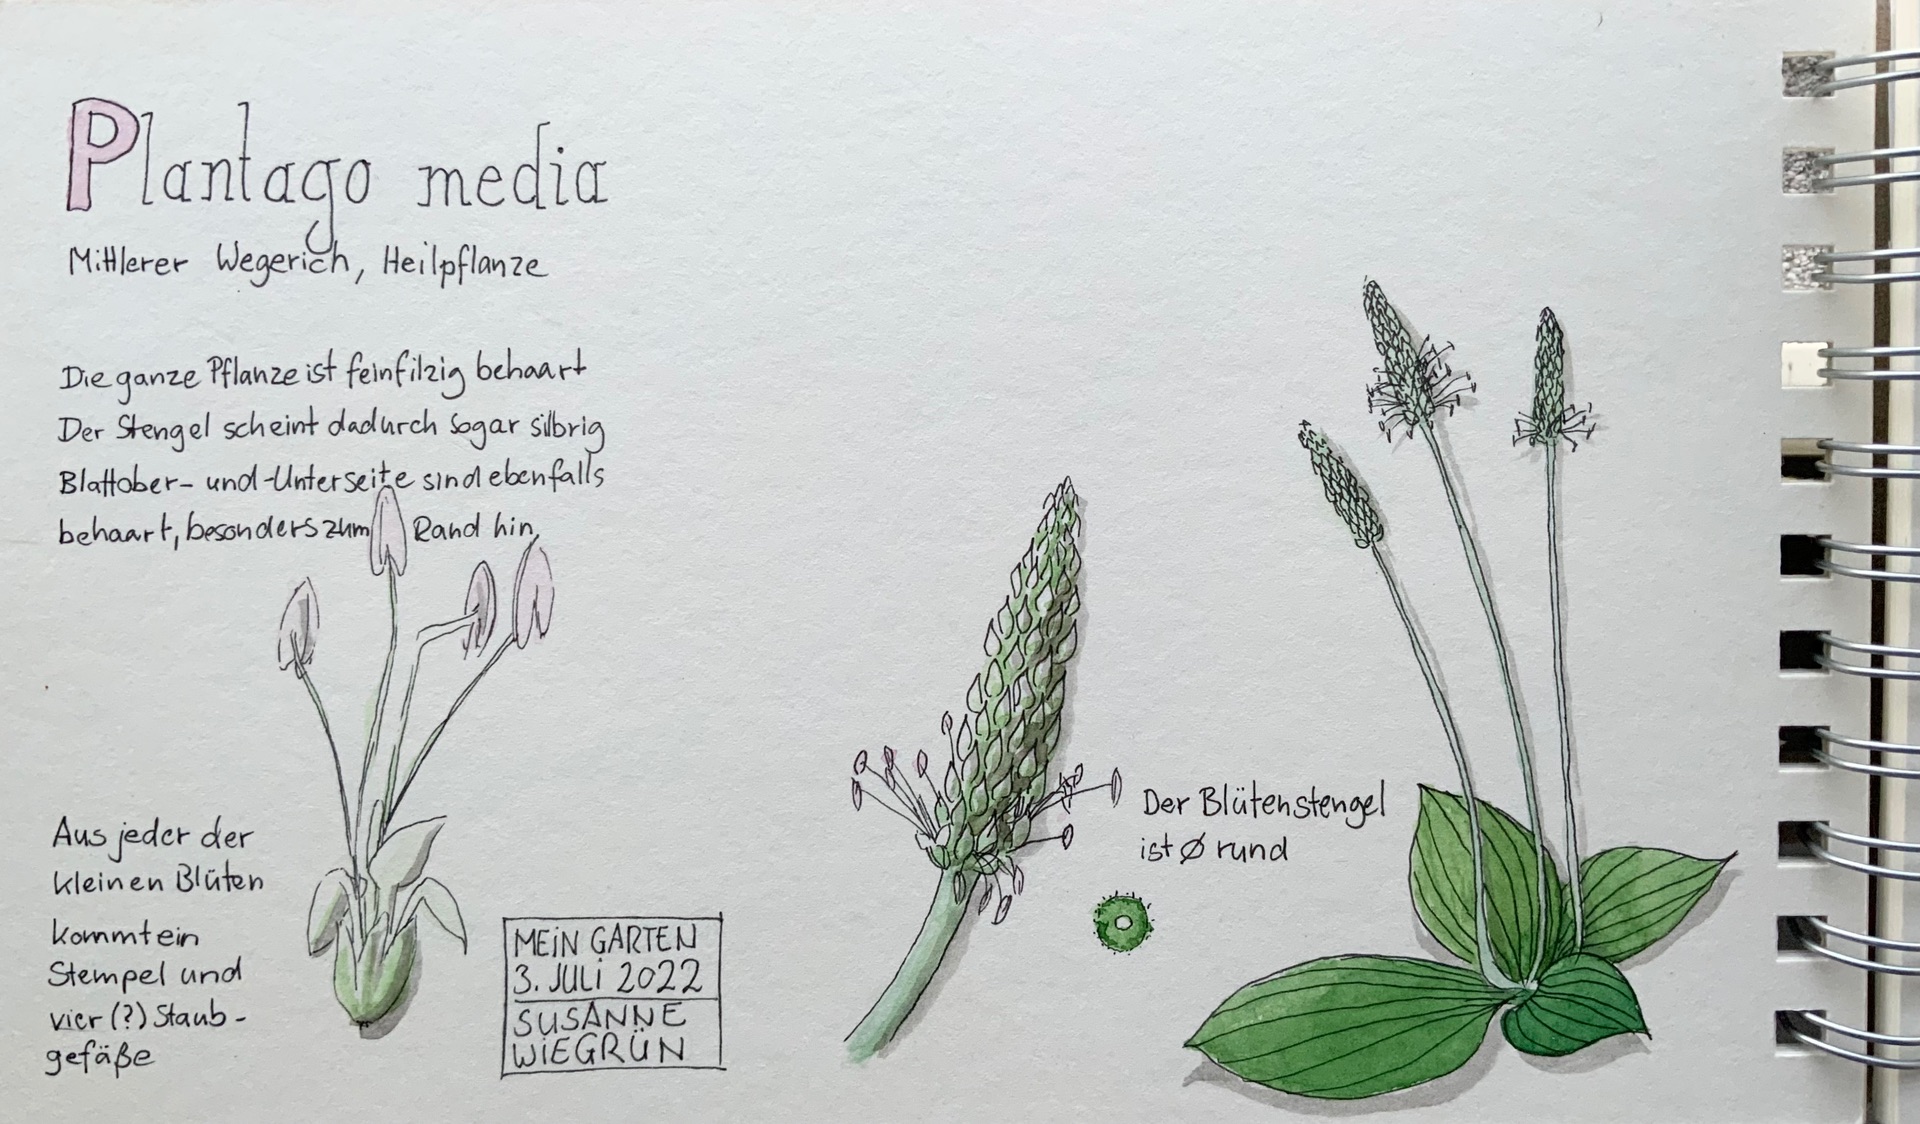 Plantago media
Mittlerer Wegerich, Heilpflanze
Die ganze Pflanze ist feinfilzig behaart
Der Stengel scheint dadurch sogar silbrig
Blattober- und -Unterseite sind ebenfalls
behaart, besonders zum Rand hin.
Aus jeder der
kleinen Blüten
kommt ein
Stempel und
vier (?) Staub-
gefäße
MEiN GARTEN
3. JULi 2022
SUSANNE
WiEGRÜN
Der Blütenstengel
ist Ø rund